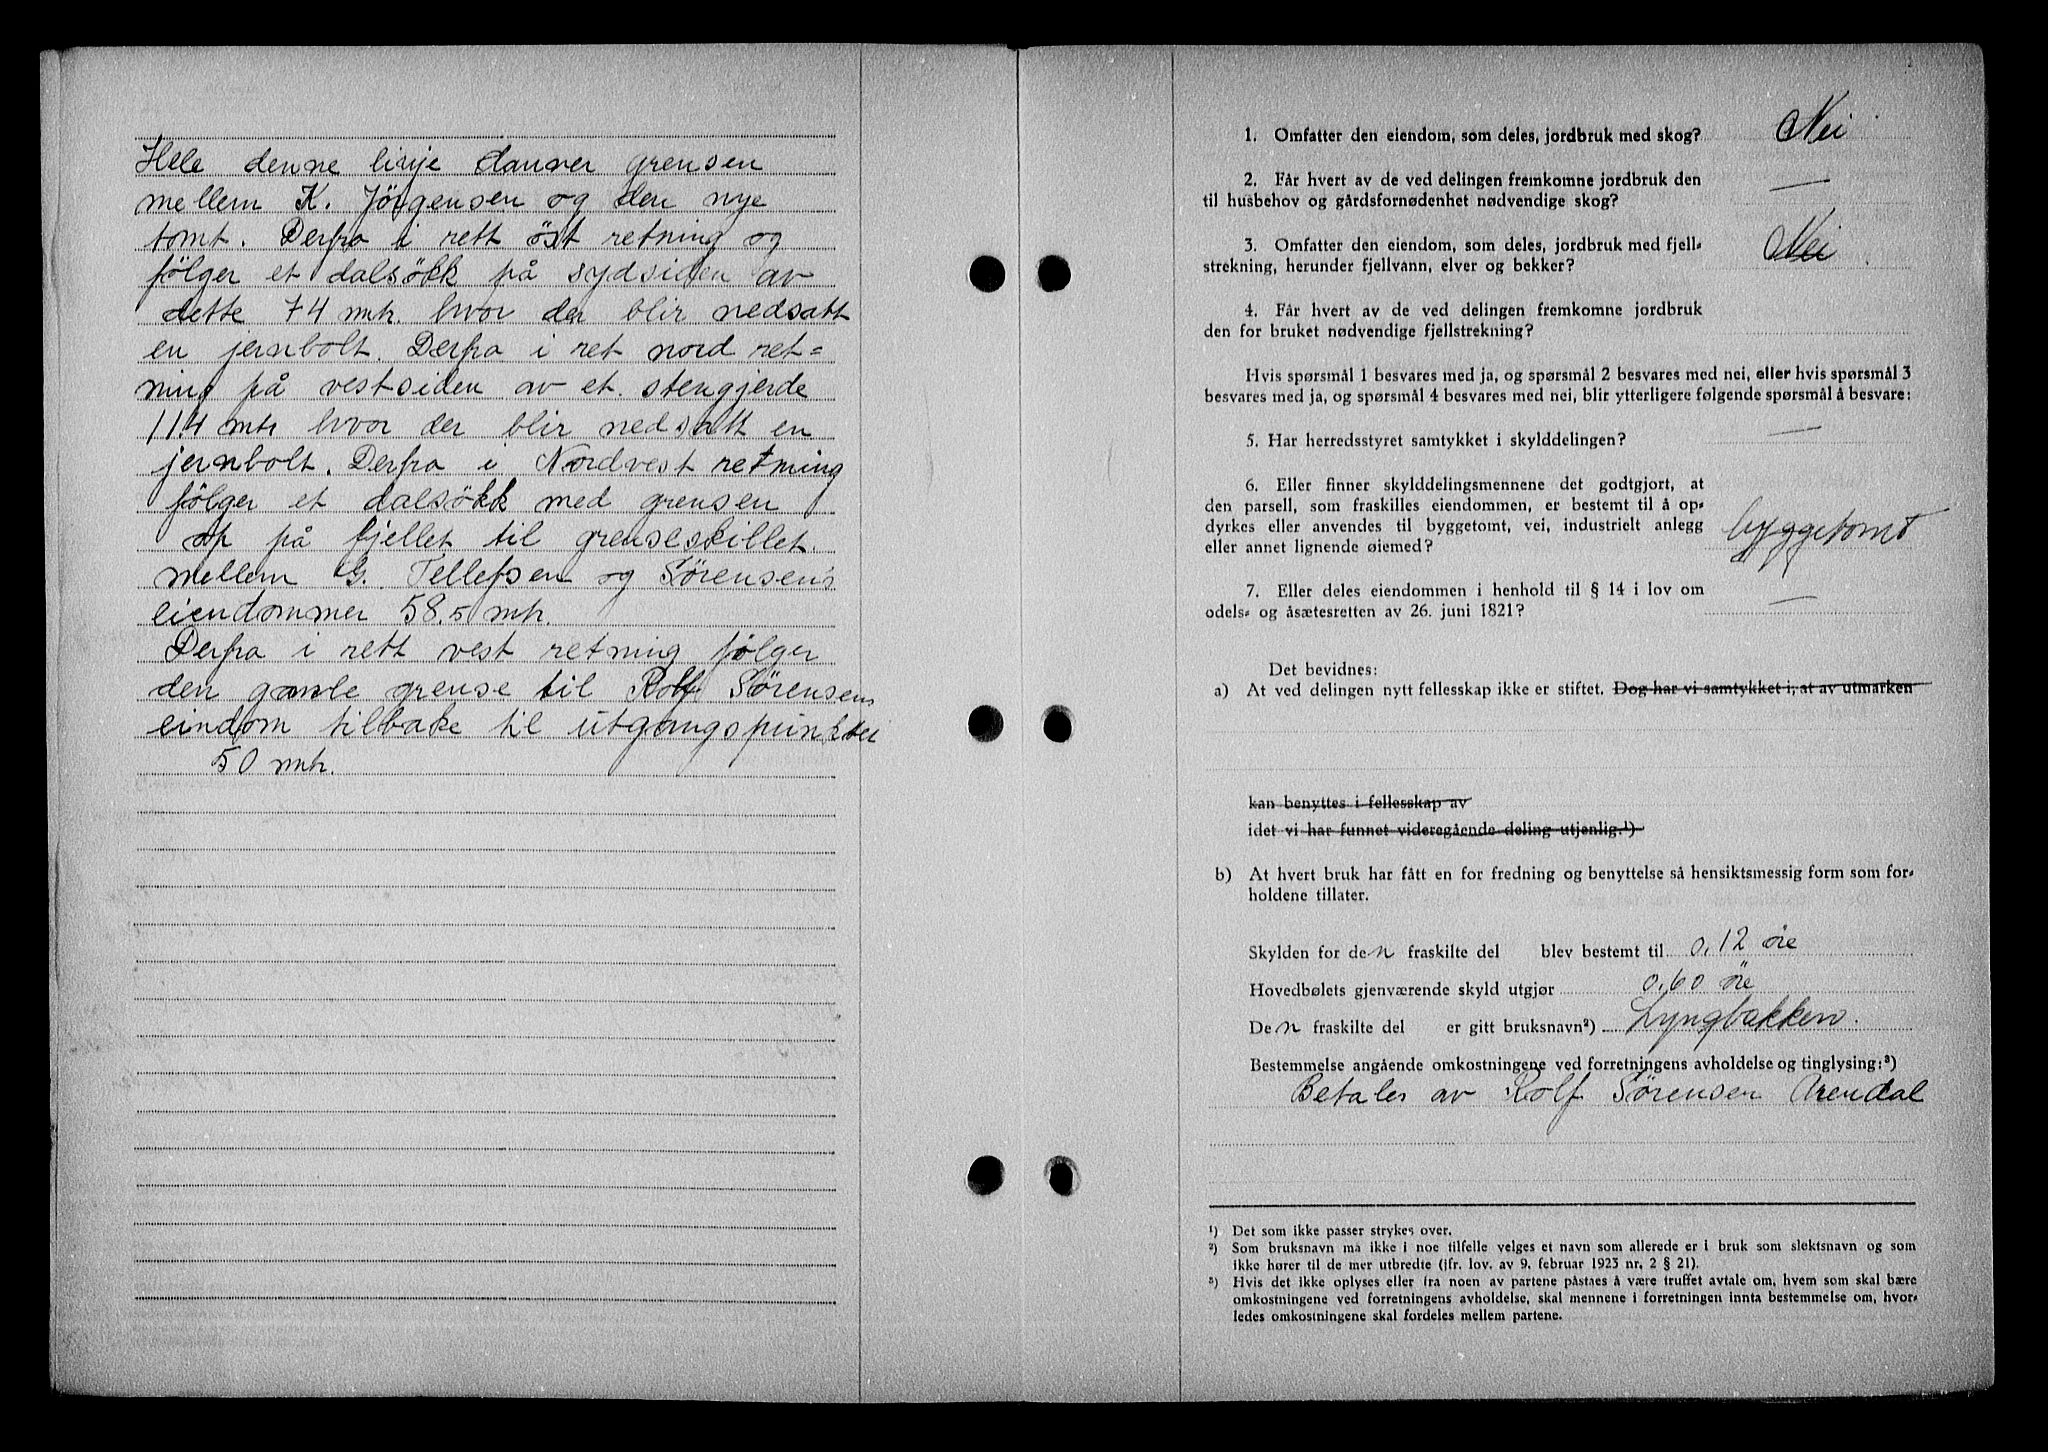 Hele denne linje danner grensen
mellem K. Jörgensen og den nye
tomt. Derfra i rett öst retning og
fölger et dalsökk på sydsiden av
dette 74 mtr. hvor der blir nedsatt
en jernbolt. Derfra i ret nord ret=
ning på vestsiden av et stengjerde
114 mtr hvor der blir nedsatt en
jernbolt. Derfra i Nordvest retning
fölger et dalsökk med grensen
op på fjellet til grenseskillet
mellem G. Tellefsen og Sörensens
eiendommer 58,5 mtr.
Derfra i rett vest retning fölger
den gamle grense til Rolf Sörensens
eindom tilbake til utgangspunktet
50 mtr.
1. Omfatter den eiendom, som deles, jordbruk med skog? Nei
2. Får hvert av de ved delingen fremkomne jordbruk den
til husbehov og gårdsfornødenhet nødvendige skog? —
3. Omfatter den eiendom, som deles, jordbruk med fjell-
strekning, herunder fjellvann, elver og bekker? Nei
4. Får hvert av de ved delingen fremkomne jordbruk
den for bruket nødvendige fjellstrekning?
Hvis spørsmål 1 besvares med ja, og spørsmål 2 besvares med nei, eller hvis spørsmål 3
besvares med ja, og spørsmål 4 besvares med nei, blir ytterligere følgende spørsmål å besvare:
5. Har herredsstyret samtykket i skylddelingen? —
6. Eller finner skylddelingsmennene det godtgjort, at
den parsell, som fraskilles eiendommen, er bestemt til å op-
dyrkes eller anvendes til byggetomt, vei, industrielt anlegg
eller annet lignende øiemed? byggetomt
7. Eller deles eiendommen i henhold til § 14 i lov om
odels- og åsætesretten av 26. juni 1821? —
Det bevidnes:
a) At ved delingen nytt fellesskap ikke er stiftet. Dog har vi samtykket i, at av utmarken
kan benyttes i fellesskap av
idet vi har funnet videregående deling utjenlig.¹)
b) At hvert bruk har fått en for fredning og benyttelse så hensiktsmessig form som for-
holdene tillater.
Skylden for den fraskilte del blev bestemt til 0,12 øre
Hovedbølets gjenværende skyld utgjør 0,60 öre
Den fraskilte del er gitt bruksnavn²) Lyngbakken.
Bestemmelse angående omkostningene ved forretningens avholdelse og tinglysing:³)
Betales av Rolf Sörensen Arendal
¹) Det som ikke passer strykes over.
²) Som bruksnavn må ikke i noe tilfelle velges et navn som allerede er i bruk som slektsnavn og som
ikke hører til de mer utbredte (jfr. lov. av 9. februar 1923 nr. 2 § 21).
³) Hvis det ikke oplyses eller fra noen av partene påståes å være truffet avtale om, hvem som skal bære
omkostningene ved forretningens avholdelse, skal mennene i forretningen innta bestemmelse om, hvor-
ledes omkostningene skal fordeles mellem partene.